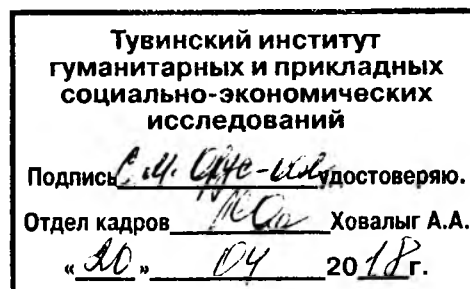 Тувинский институт
гуманитарных и прикладных
социально-экономических
исследований
Подпись С.М. Орус-оол удостоверяю.
Отдел кадров Ховалыг А.А.
«20» 04 2018г.